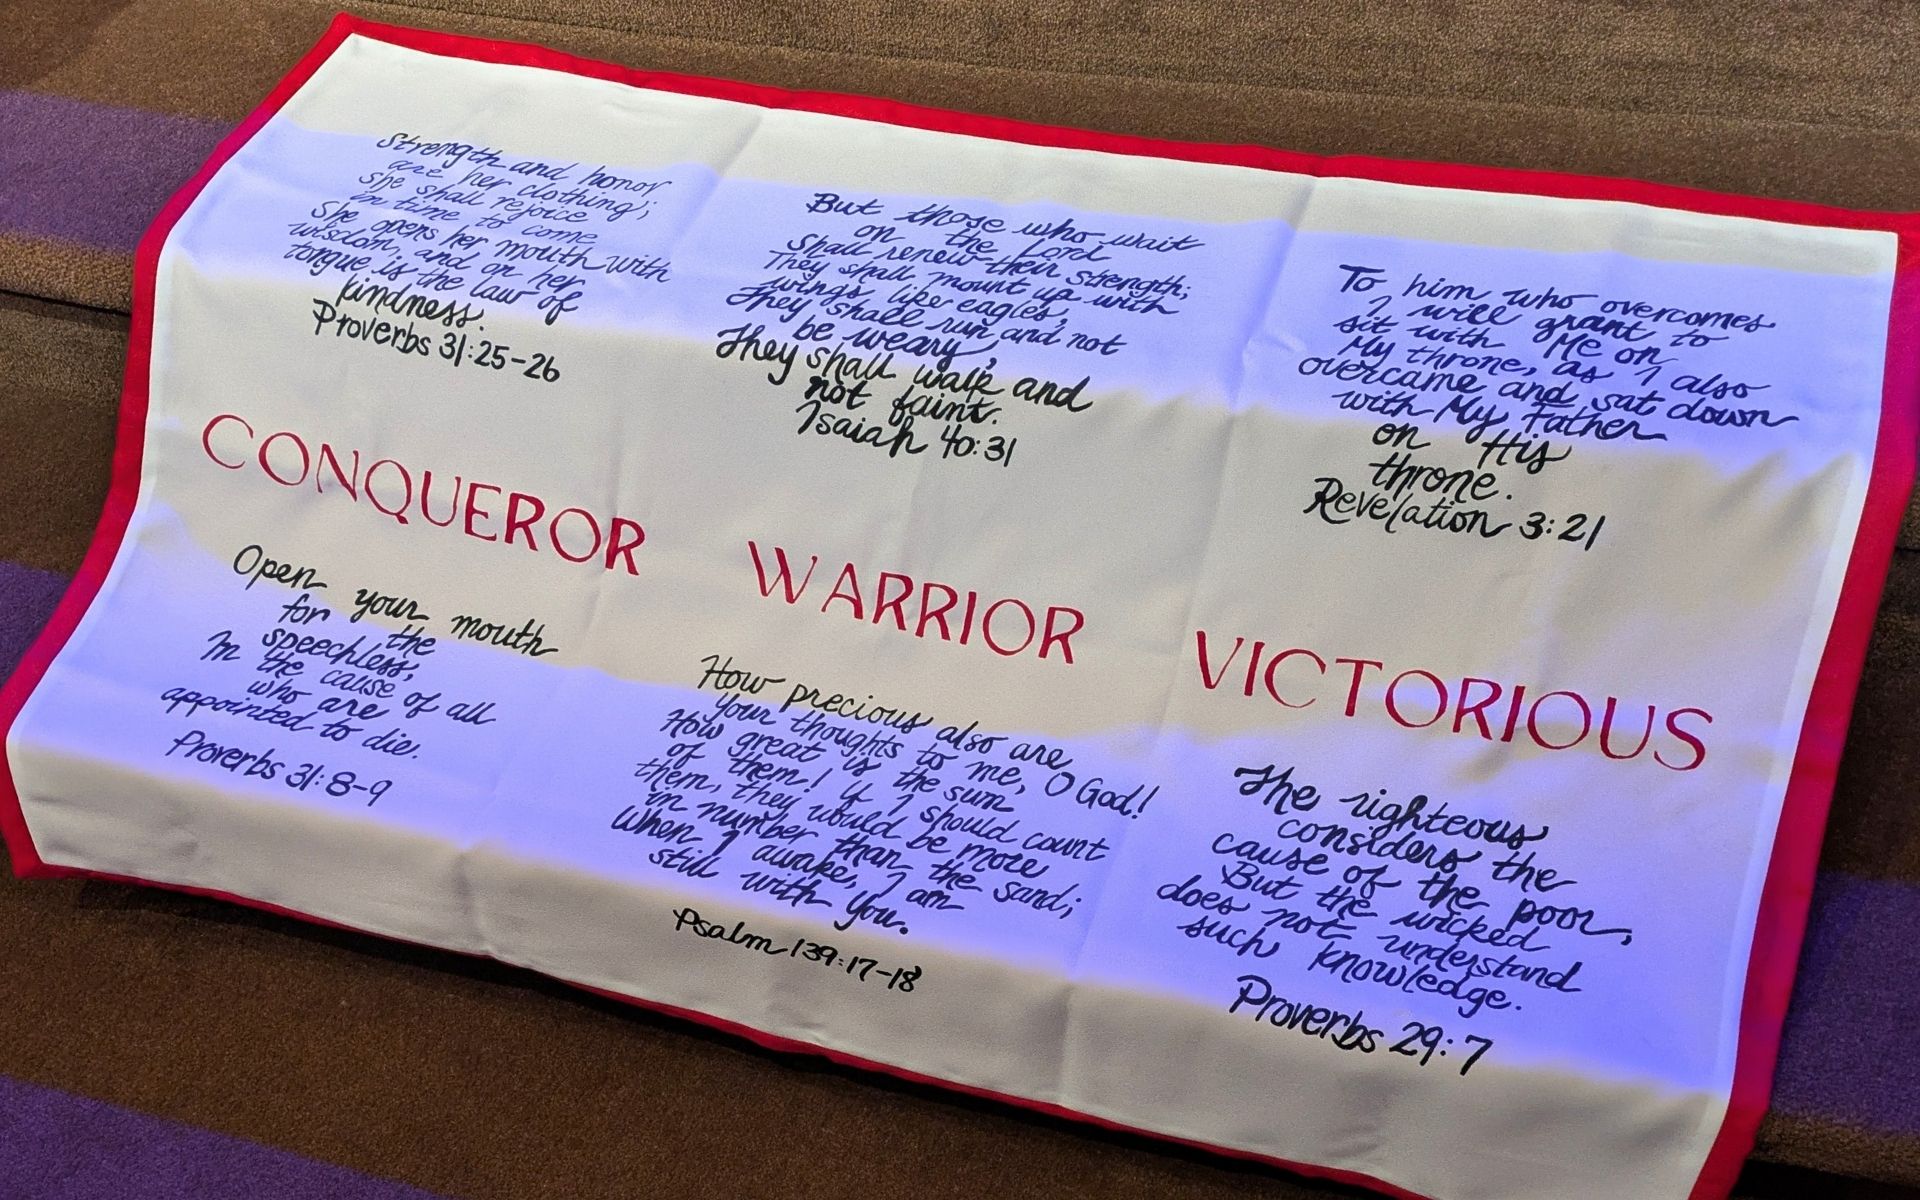 Strength and honor
are her clothing;
She shall rejoice
in time to come
She opens her mouth with
wisdom, and on her
tongue is the law of
kindness.
Proverbs 31:25-26
But those who wait
on the Lord
Shall renew their strength;
They shall mount up with
wings like eagles,
They shall run and not
be weary,
They shall walk and
not faint.
Isaiah 40:31
To him who overcomes
I will grant to
sit with Me on
My throne, as I also
overcame and sat down
with My Father
on His
throne.
Revelation 3:21
CONQUEROR WARRIOR VICTORIOUS
Open your mouth
for the
speechless,
In the cause of all
who are
appointed to die.
Proverbs 31:8-9
How precious also are
Your thoughts to me, O God!
How great is the sum
of them! If I should count
them, they would be more
in number than the sand;
When I awake, I am
still with You.
Psalm 139:17-18
The righteous
considers the
cause of the poor,
But the wicked
does not understand
such knowledge.
Proverbs 29:7